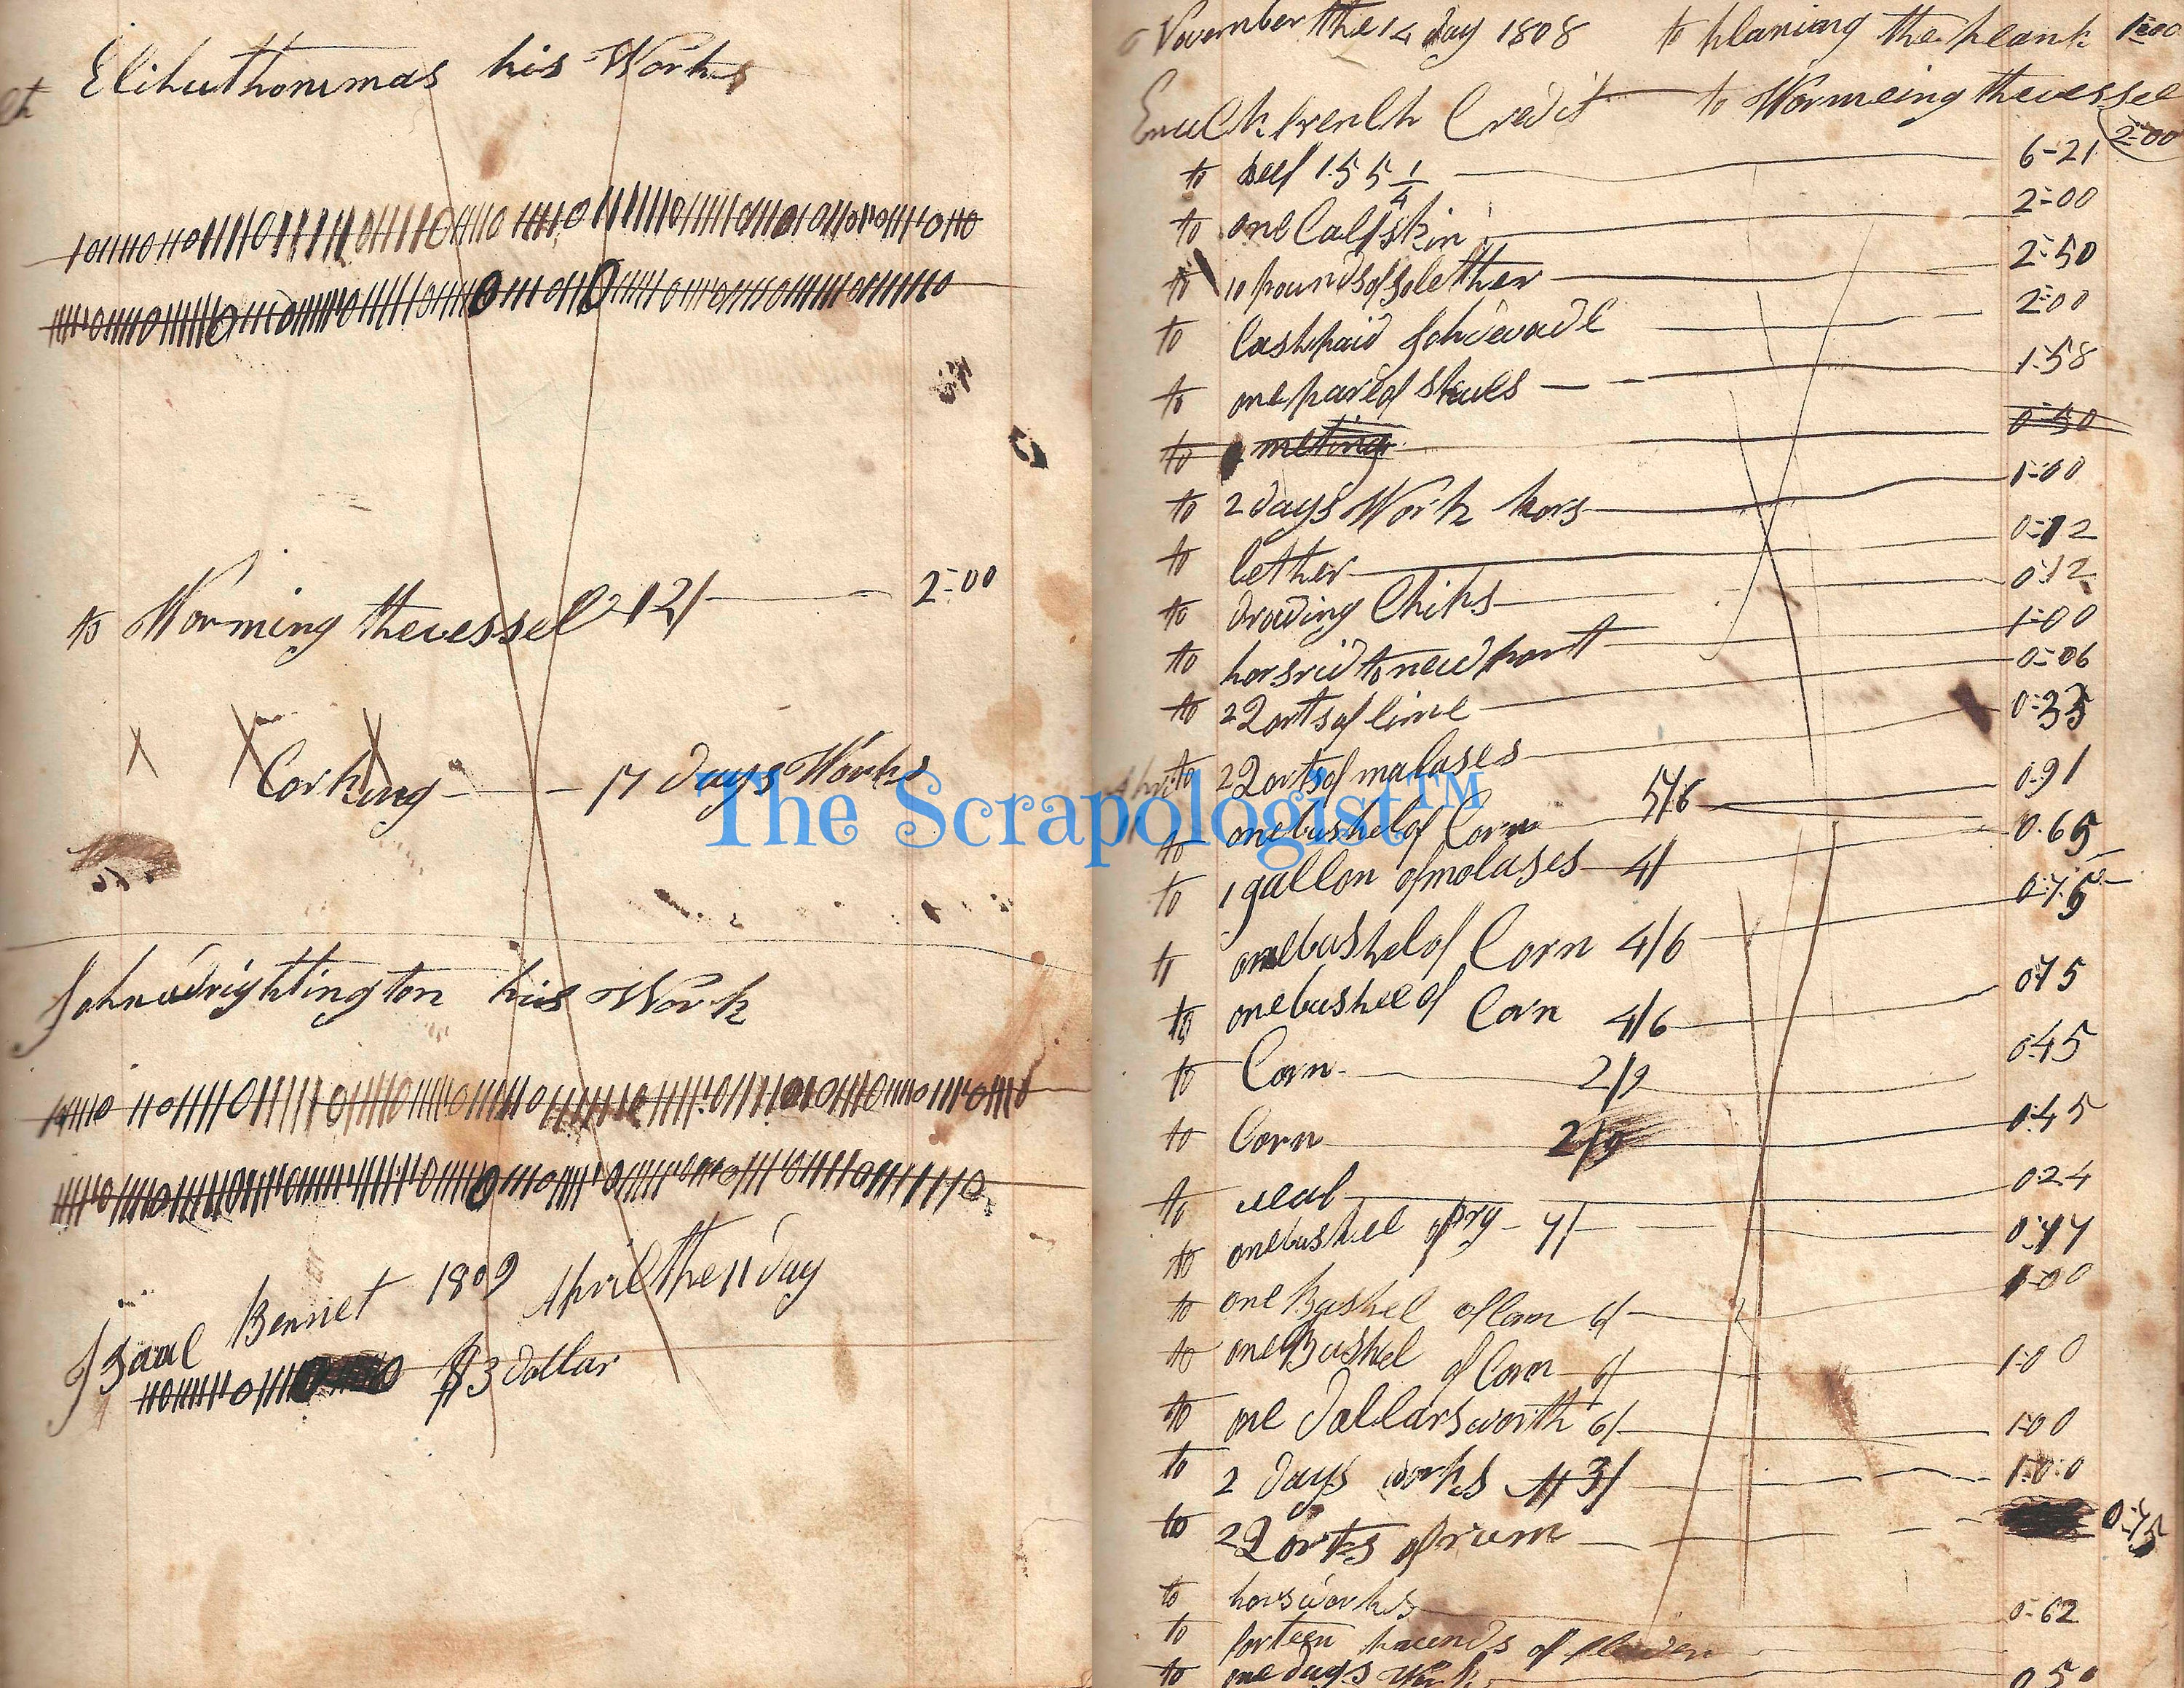 Elihuthommas his Works
to Worming thevessel 12/ 2=00
Corking 17 days Works
Johnwrightington his Work
Isaul Bennet 1809 Aprilthe 11 day
$3 dollar
The Scrapologist™
November the 14 day 1808 to planing the plank 1=00
Credit to Wormeing thevessel
2=00
to beef 155 1/4 6-21
to one Calfskin 2=00
to 10 pounds of solether 2=50
to Cashpaid 2=00
to one pare of 1=58
to meting 0=50
to 2 days Work hors 1=00
to lether 0=12
to drawing Chips 0=12
to horsrid to newport 1=00
to 2 Qorts of lime 0=06
to 2 Qorts of malases 0=35
to onebushel of Corn 5/6 0.91
to 1 gallon of molases 4/ 0.65
to onebushel of Corn 4/6 0.75
to onebushel of Corn 4/6 0.75
to Corn 2/9 0.45
to Corn 2/9 0.45
to veal 0.24
to onebushel of ry
to one Bushel of Corn 6/ 1=00
to one Bushel of Corn 6/ 1=00
to one dollarsworth 6/ 1=00
to 2 days works At 3/ 1.0.0
to 2 Qorts of rum 0=75
to horsworks 0=62
to forteen pounds of
to one days Work 0 50